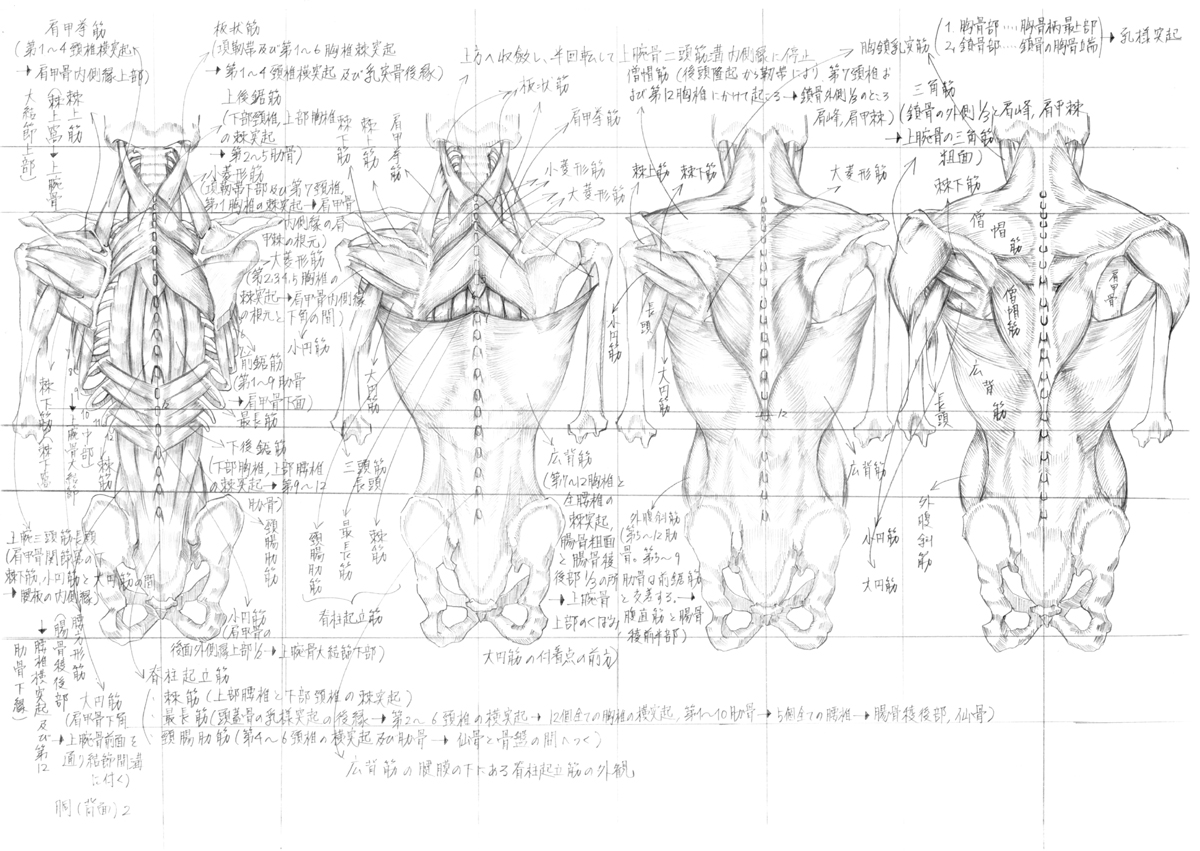 肩甲挙筋
(第1〜4頚椎横突起
→肩甲骨内側縁上部)
板状筋
(項靭帯及び第1〜6胸椎棘突起
→第1〜4頚椎横突起及び乳突骨後縁)
上方へ収斂し、半回転して上腕骨二頭筋溝内側縁に停止
僧帽筋(後頭隆起から靭帯により第7頚椎お
よび第12胸椎にかけて起こる→鎖骨外側1/3のところ
肩峰,肩甲棘)
胸鎖乳突筋
1. 胸骨部‥‥胸骨柄最上部
2. 鎖骨部‥‥鎖骨の胸骨端
→乳様突起
三角筋
(鎖骨の外側1/3と肩峰、肩甲棘
→上腕骨の三角筋
粗面)
棘上筋
(棘上窩→上腕骨
大結節上部)
上後鋸筋
(下部頚椎,上部胸椎
の棘突起
→第2〜5肋骨)
小菱形筋
(項靭帯下部及び第7頚椎,
第1胸椎の棘突起→肩甲骨
内側縁の肩
甲棘の根元)
大菱形筋
(第2,3,4,5胸椎の
棘突起→肩甲骨内側縁
の根元と下角の間)
小円筋
前鋸筋
(第1〜9肋骨
→肩甲骨下面)
最長筋
下後鋸筋
(下部胸椎,上部腰椎
の棘突起→第9〜12
肋骨)
棘下筋
棘上筋
肩甲挙筋
板状筋
肩甲挙筋
小菱形筋
大菱形筋
棘上筋
棘下筋
大菱形筋
棘下筋
僧帽筋
僧帽筋
肩甲骨
広背筋
長頭
小円筋
長頭
大円筋
大円筋
棘下筋
8
9
10
11
12
棘筋
頚腸肋筋
三頭筋
長頭
頚腸肋筋
最長筋
棘筋
脊柱起立筋
広背筋
(第7〜12胸椎と
全腰椎の
棘突起,
腸骨粗面
と腸骨後
後部1/3の所
→上腕骨
上部のくぼみ,
大円筋の付着点の前方)
外腹斜筋
(第5〜12肋
骨。第5〜9
肋骨は前鋸筋
と交差する。→
腹直筋と腸骨
稜前半部)
12
広背筋
小円筋
大円筋
外腹斜筋
上腕三頭筋長頭
(肩甲骨関節窩の下
棘下筋,小円筋と大円筋の間
→腱板の内側縁)
小円筋
(肩甲骨の
後面外側縁上部1/2→上腕骨大結節下部)
腰方形筋
(腸骨稜後部
→腰椎横突起及び第12
肋骨下縁)
大円筋
(肩甲骨下角
→上腕骨前面を
通り結節間溝
に付く)
脊柱起立筋
・棘筋(上部腰椎と下部頚椎の棘突起)
・最長筋(頭蓋骨の乳様突起の後縁→第2〜6頚椎の横突起→12個全ての胸椎の横突起,第1〜10肋骨→5個全ての腰椎→腸骨稜後部,仙骨)
・頚腸肋筋(第4〜6頚椎の横突起及び肋骨→仙骨と骨盤の間へつく)
広背筋の腱膜の下にある脊柱起立筋の外観
胴(背面)2